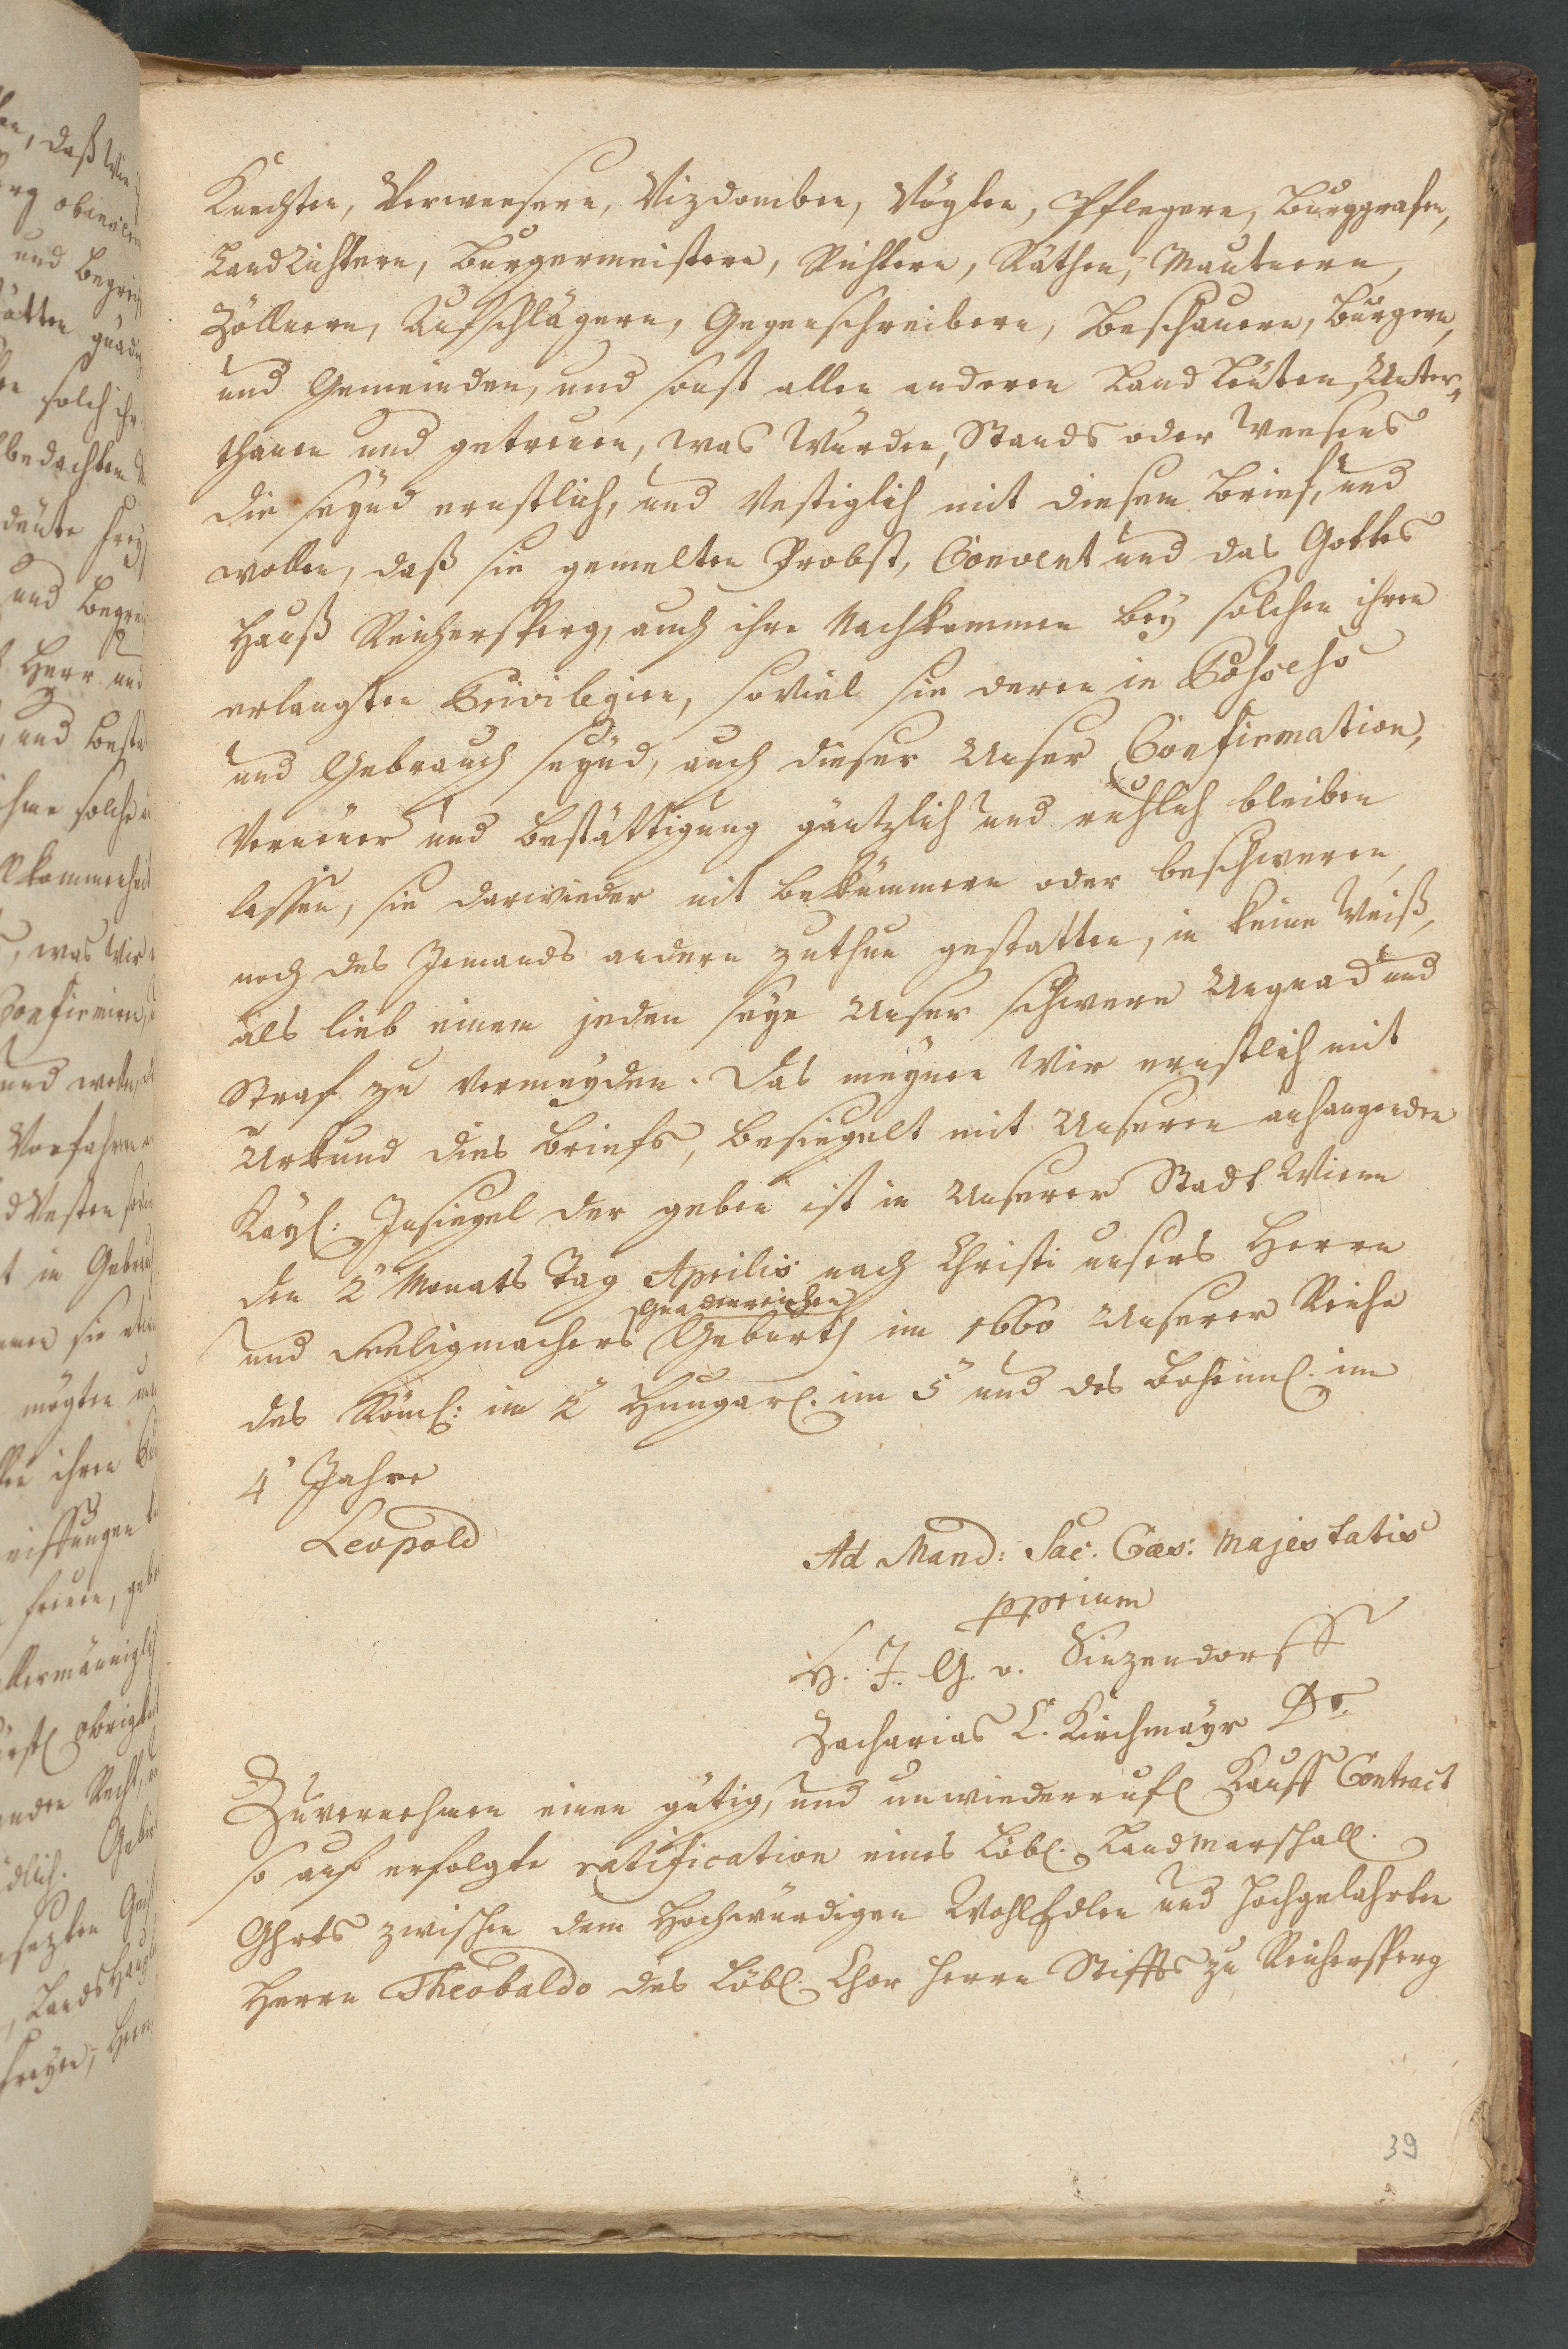 Knechten, Verweesern, Vizdomben, Vögten, Pflegern, Burggrafen,
LandRichtern, Burgermeistern, Richtern, Räthen, Mautnern,
Zöllnern, Aufschlägern, Gegenschreibern, Beschauern, Bürgern,
und Gemeinden, und sonst allen anderen Land Leuten, Unter,,
thanen und getreuen, was Würden, Stands oder Weesens
die seynd ernstlich, und Vestiglich mit diesem Brief, und
wollen, daß sie gemelten Probst, Convent und das Gottes
Hauß Reichersperg, auch ihre Nachkommen bey solchen ihren
erlangten Privilegien, soviel sie deren in Possess
und Gebrauch seynd, auch dieser Unser Confirmation,
Verneuer und Bestättigung gäntzlich und ruhlich bleiben
lassen, sie darwieder nit bekümmern oder beschweren,
noch des Jemands andern zuthun gestatten, in keine Weiß,
als lieb einem jeden seye Unser schwere Ungnad und
Straf zu vermeyden. Das meynen Wir ernstlich mit
Urkund dies Briefs, besiegelt mit Unseren anhangenden
Kayl: Insiegel der geben ist in Unserer Stadt Wienn
den 2ⁿ Monats Tag Aprilis nach Christi unsers Herrn
gnadenreichen
und Seeligmachers Geburth im 1660 Unserer Reiche
des Römℓ: im 2ⁿ Hungarℓ. im 5ⁿ und des Boheimℓ. im
4ⁿ Jahre
Leopold
Ad Mand: Sac. Caes: Majestatis
pprium
H. J. G. v. Sinzendorff
Zacharias L. Kirchmayr Dr.
Zuvernehmen einen gütig, und unwiederrufl Kauff Contract
so auf erfolgte ratification eines Löbl. Landmarschall.
Ghrts zwischen dem Hochwürdigen WohlEdlen und Hochgelahrten
Herrn Theobaldo des Löbl. Chor Herrn Stiffts zu Reichersperg
39